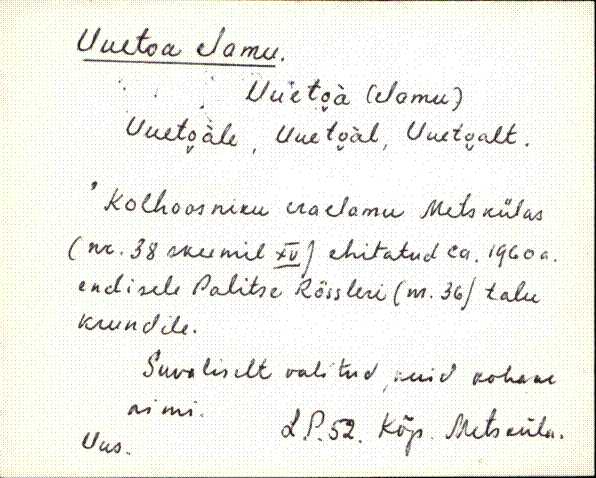 Uuetoa elamu.
Uuetọ̀à (elamu)
Uuetoàle, Uuetoàl, Uuetoalt.
Kolhoosniku eraelamu Metskülas
(nr. 38 skeemil XV) ehitatud ca. 1960 a.
endisele Palitse Rössleri (nr. 36) talu
krundile.
Suvaliselt valitud, kuid kohane
nimi.
L P. 52. Kõp. Metsküla.
Uus.